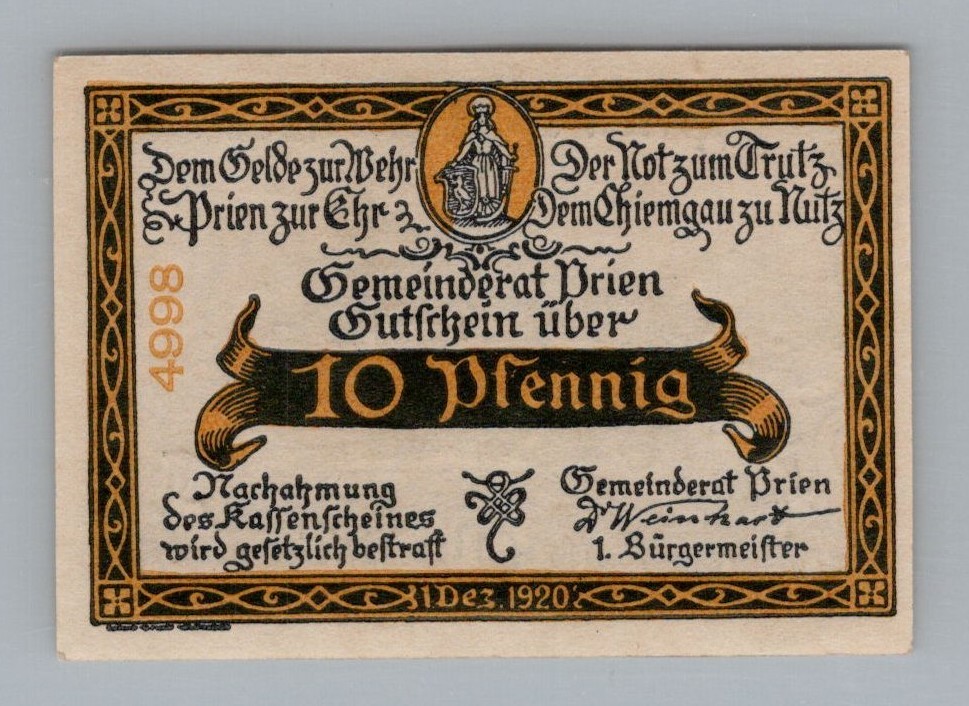 Dem Gelde zur Wehr
Prien zur Ehr
Der Not zum Trutz
Dem Chiemgau zu Nutz
Gemeinderat Prien
Gutschein über
10 Pfennig
4998
Nachahmung
des Kassenscheines
wird gesetzlich bestraft
Gemeinderat Prien
Dr Weinhart
1. Bürgermeister
1 Dez. 1920